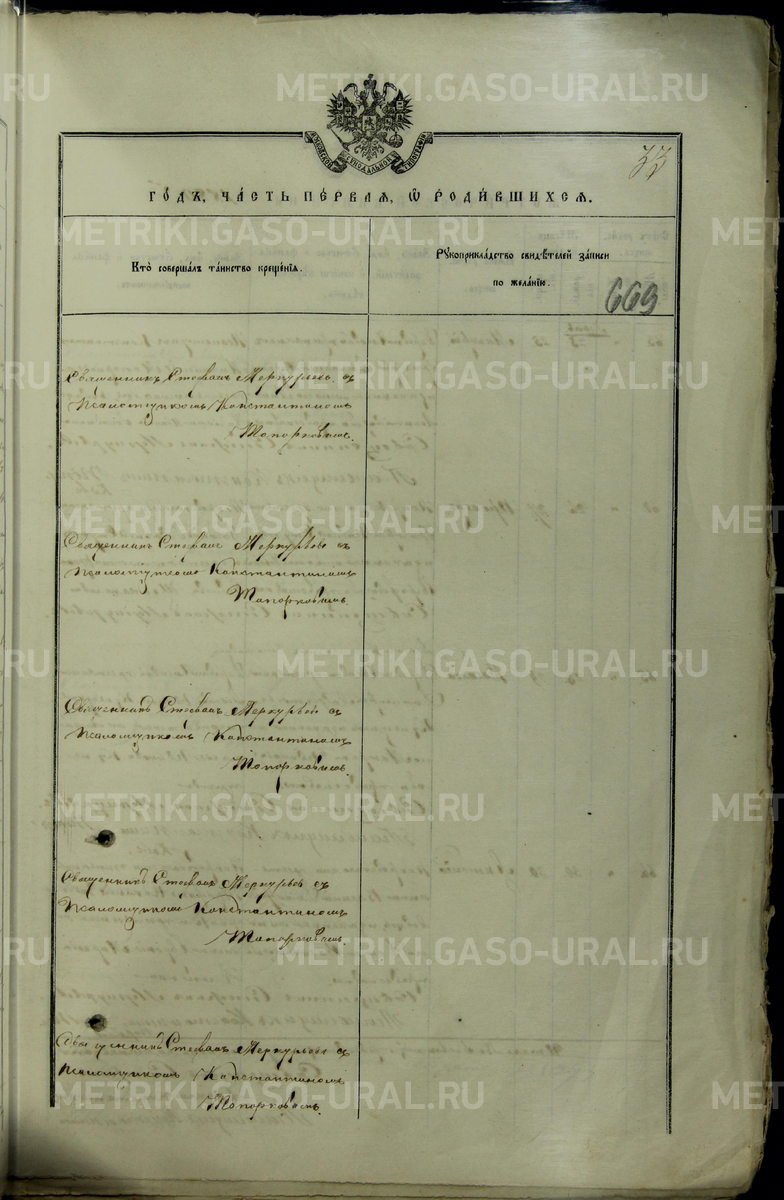 METRIKI.GASO-URAL.RU
МОСКОВСКОЙ СѴНОДАЛЬНОЙ ТИПОГРАФІИ
33
ГО́ДЪ, ЧА́СТЬ ПЕ́РВАЯ, Ѽ РОДИ́ВШИХСЯ.
Кто̀ соверша́лъ та́инство креще́нїѧ.
Рꙋкоприкла́дство свидѣ́телей за́писи
по жела́нїю.
669
Священникъ Стефанъ Меркурьевъ съ
Псаломщикомъ Константиномъ
Топорковымъ.
Священникъ Стефанъ Меркурьевъ съ
Псаломщикомъ Константиномъ
Топорковымъ.
Священникъ Стефанъ Меркурьевъ съ
Псаломщикомъ Константиномъ
Топорковымъ.
Священникъ Стефанъ Меркурьевъ съ
Псаломщикомъ Константиномъ
Топорковымъ.
Священникъ Стефанъ Меркурьевъ съ
Псаломщикомъ Константиномъ
Топорковымъ.